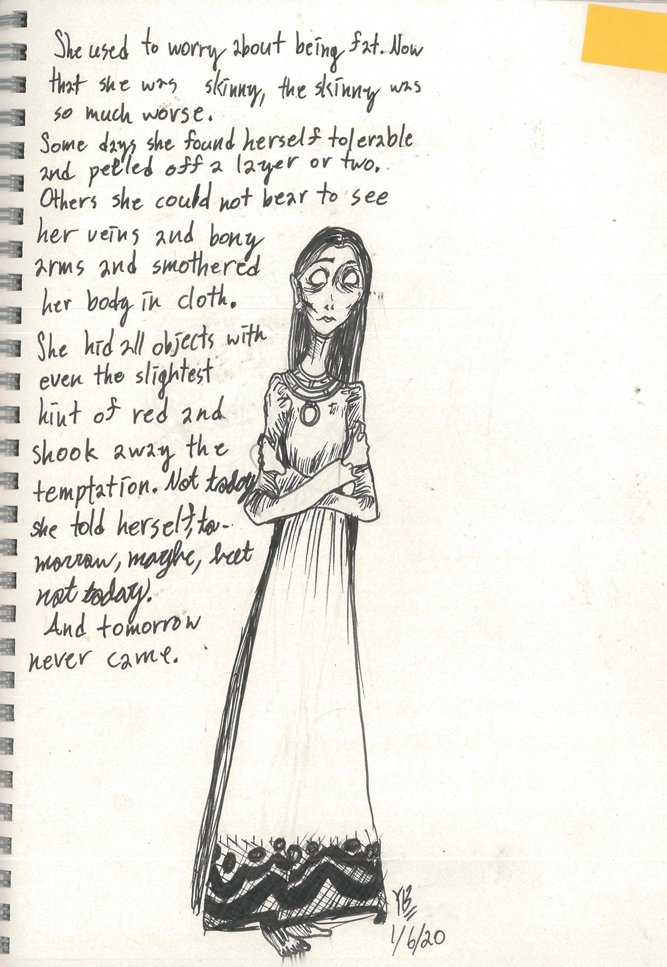 She used to worry about being fat. Now
that she was skinny, the skinny was
so much worse.
Some days she found herself tolerable
and peeled off a layer or two.
Others she could not bear to see
her veins and bony
arms and smothered
her body in cloth.
She hid all objects with
even the slightest
hint of red and
shook away the
temptation. Not today
she told herself, to-
morrow, maybe, but
not today.
And tomorrow
never came.
YB
1/6/20